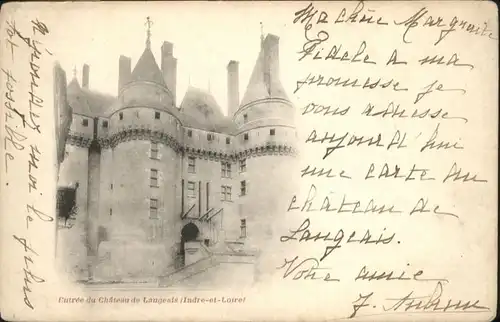 Ma chère Marguerite
Fidèle à ma
promesse je
vous adresse
aujourd'hui
une carte du
château de
Langeais.
Votre amie
Répondez moi le plus
tot possible
Entrée du Château de Langeais (Indre-et-Loire)